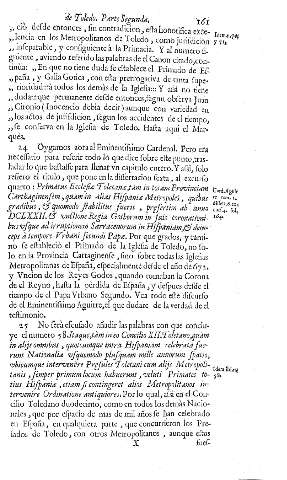 de Toledo. Parte Segunda. 161
„ ció desde entonces, sin contradicion, esta honorifica exce-
„ lencia en los Metropolitanos de Toledo, como jurisdicion
„ inseparable, y consiguiente à la Primacia. Y al numero
quatro, aviendo referido las palabras de el Canon citado,
: En que no tiene duda se estableció el Primado de Es-
„ paña, y Galia Gotica, con esta prerrogativa de tanta supe-
„ rioridad à todos los demás de la Iglesia: Y assi no tiene
„ duda, que permaneciò desde entonces, segun observa Juan
„ Cironio (Innocencio debia decir) aunque con variedad en
„ los actos de jurisdicion, segun los accidentes de el tiempo,
„ se conserva en la Iglesia de Toledo. Hasta aqui el Mar-
quès.
24 Oygamos aora al Eminentissimo Cardenal. Pero era
necessario para referir todo lo que dice sobre este punto, tras-
ladar lo que bastasse para llenar un capitulo entero. Y assi, solo
refiero el titulo, que pone en la dissertacion sexta, al excurso
quarto: Primatus Ecclesiæ Toletanæ, tam in totam Provinciam
Carthaginensem, quam in alias Hispaniæ Metropoles, quibus
gradibus, & quomodo stabilitus fuerit, præsertim ab anno
DCLXXII. & unctione Regia Gothorum in suis coronationi-
bus usque ad irruptionem Sarracenorum in Hispaniam, & dein-
ceps à tempore Urbani secundi Papæ. Por que grados, y como
se estableciò el Primado de la Iglesia de Toledo, no
solo en la Provincia Cartaginense, sino sobre todas las Iglesias
Metropolitanas de España, especialmente desde el año de 672.
y Uncion de los Reyes Godos, quando recibian la Corona
de el Reyno, hasta la pérdida de España, y despues desde el
tiempo de el Papa Urbano Segundo. Vea todo este discurso
de el Eminentissimo Aguirre, el que dudare de la verdad de el
testimonio.
25 No será escusado añadir las palabras con que conclu-
ye el numero 58. Itaque, tam in eo Concilio XIII. Toletano, quam
in alijs omnibus, quotcumque intra Hispaniam celebrata fue-
runt Nationalia usquemodo plusquam mille annorum spatio,
ubicumque intervenere Præsules Toletani cum alijs Metropoli-
tanis, semper primum locum habuerunt, veluti Primates to-
tius Hispaniæ, etiam si contingeret alios Metropolitanos in-
tervenire Ordinatione antiquiores. Por lo qual, assi en el Con-
cilio Toledano duodecimo, como en todos los demás Nacio-
nales, que por espacio de mas de mil años se han celebrado
en España, en qualquiera parte, que concurrieron los Pre-
lados de Toledo, con otros Metropolitanos, aunque estos
X fues-